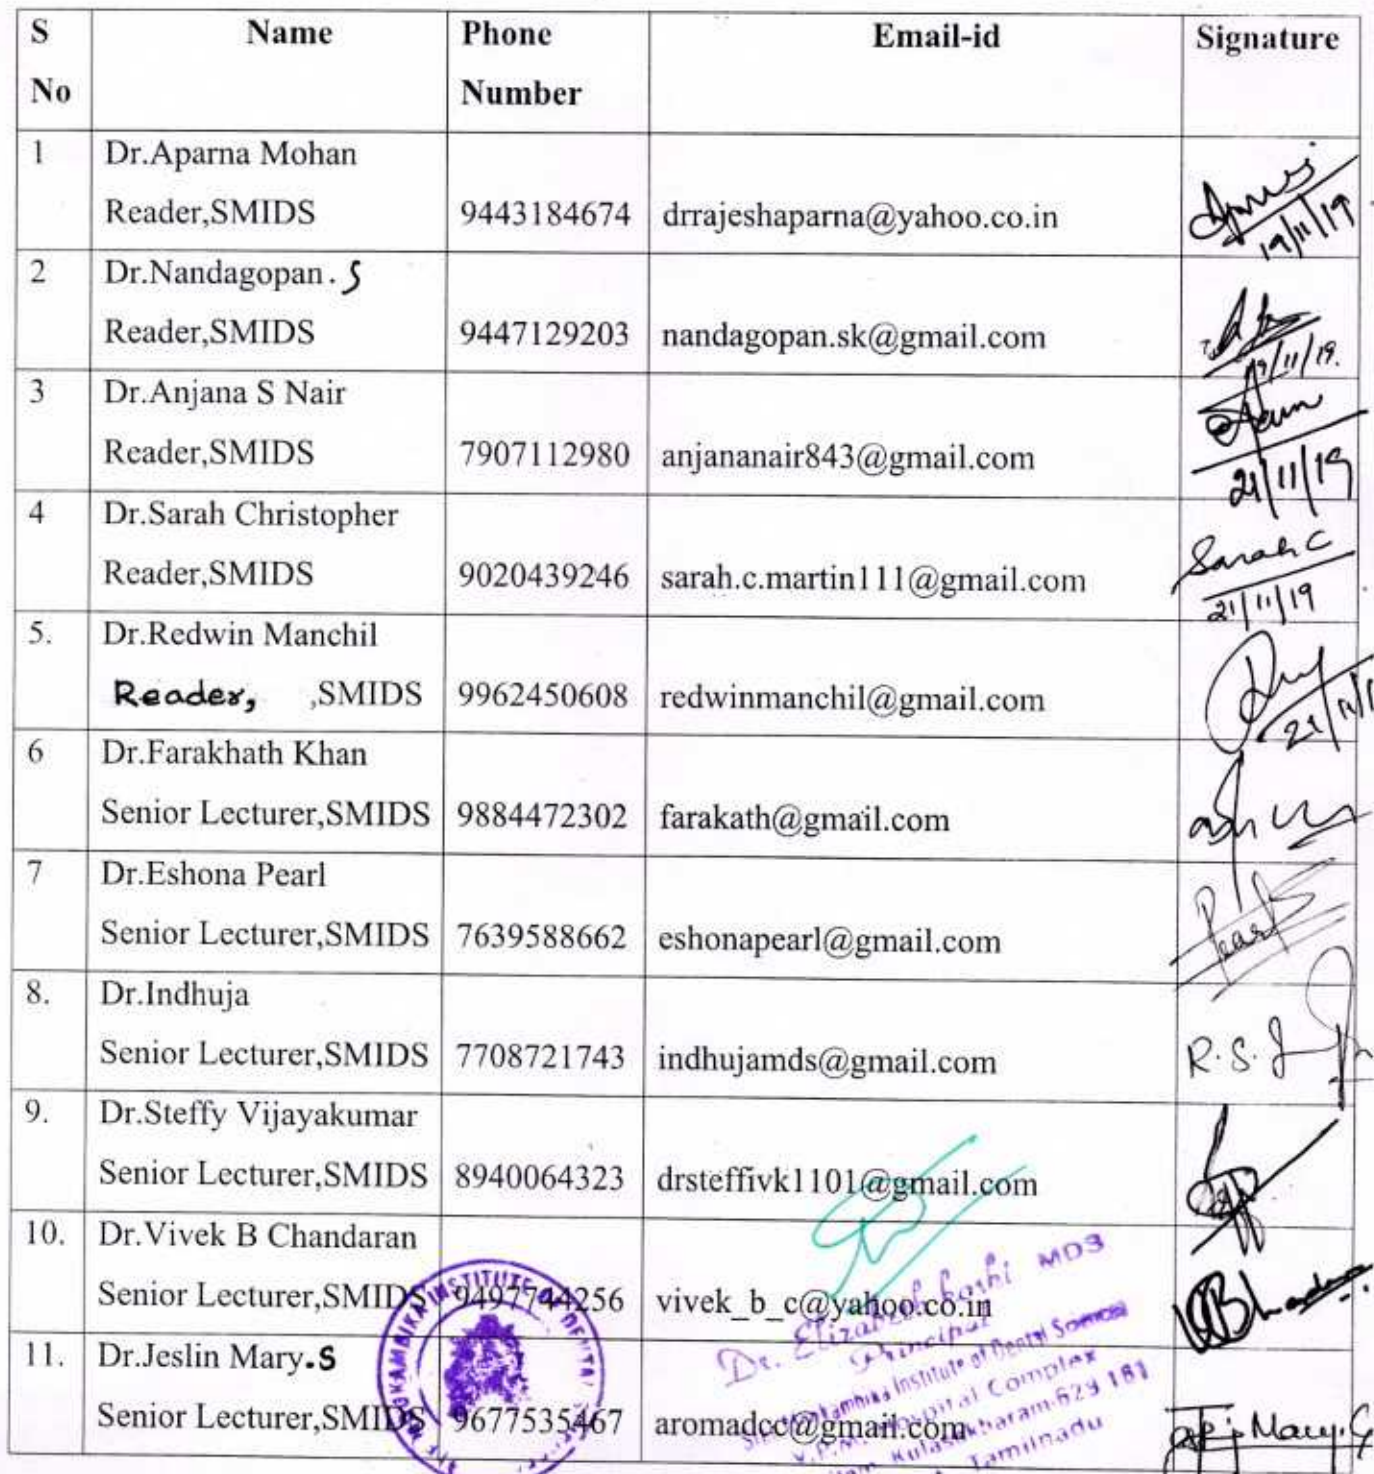 S No Name Phone Number Email-id Signature
1 Dr.Aparna Mohan
Reader,SMIDS 9443184674 drrajeshaparna@yahoo.co.in
19/11/19
2 Dr.Nandagopan. S
Reader,SMIDS 9447129203 nandagopan.sk@gmail.com
19/11/19.
3 Dr.Anjana S Nair
Reader,SMIDS 7907112980 anjananair843@gmail.com
21/11/19
4 Dr.Sarah Christopher
Reader,SMIDS 9020439246 sarah.c.martin111@gmail.com Sarah C
21/11/19
5. Dr.Redwin Manchil
Reader, ,SMIDS 9962450608 redwinmanchil@gmail.com
6 Dr.Farakhath Khan
Senior Lecturer,SMIDS 9884472302 farakath@gmail.com
7 Dr.Eshona Pearl
Senior Lecturer,SMIDS 7639588662 eshonapearl@gmail.com Pearl
8. Dr.Indhuja
Senior Lecturer,SMIDS 7708721743 indhujamds@gmail.com R.S.
9. Dr.Steffy Vijayakumar
Senior Lecturer,SMIDS 8940064323 drsteffivk1101@gmail.com
10. Dr.Vivek B Chandaran
Senior Lecturer,SMIDS 9497744256 vivek_b_c@yahoo.co.in
11. Dr.Jeslin Mary.S
Senior Lecturer,SMIDS 9677535467 aromadcc@gmail.com Mary.
MOOKAMBIKA INSTITUTE OF DENTAL
Dr. Elizabeth Koshi MDS
Principal
Mookambika Institute of Dental Sciences
V.P.M. Hospital Complex
Kulasekharam-629 161
Tamilnadu